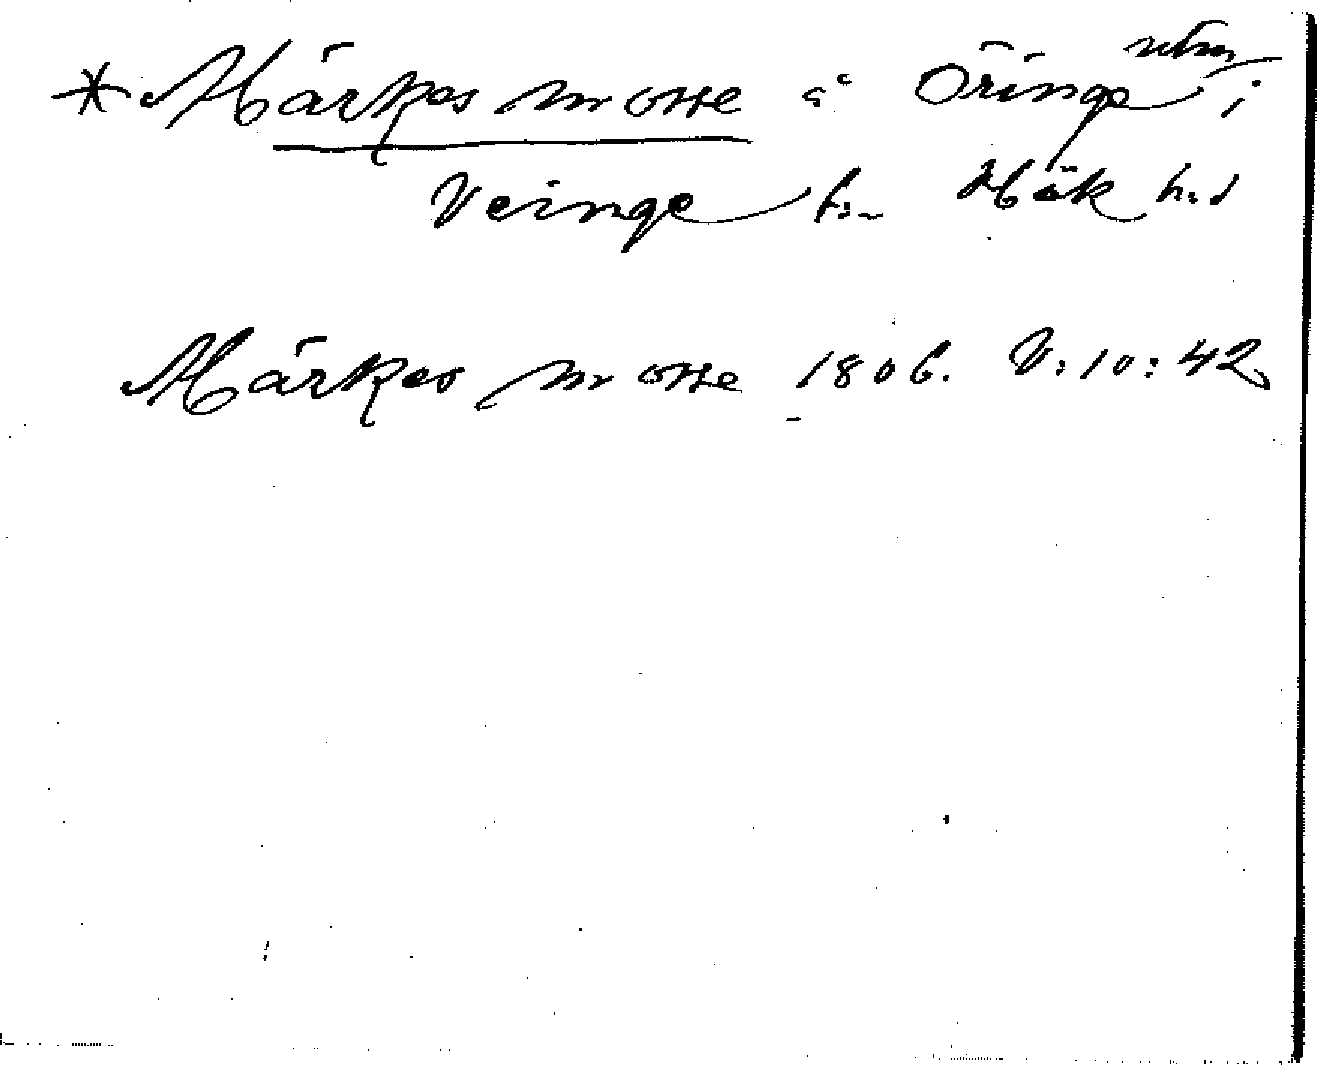 * Märkes mosse å Öringe utm i
Veinge sn Hök hd
Märkes mosse 1806. V:10:42